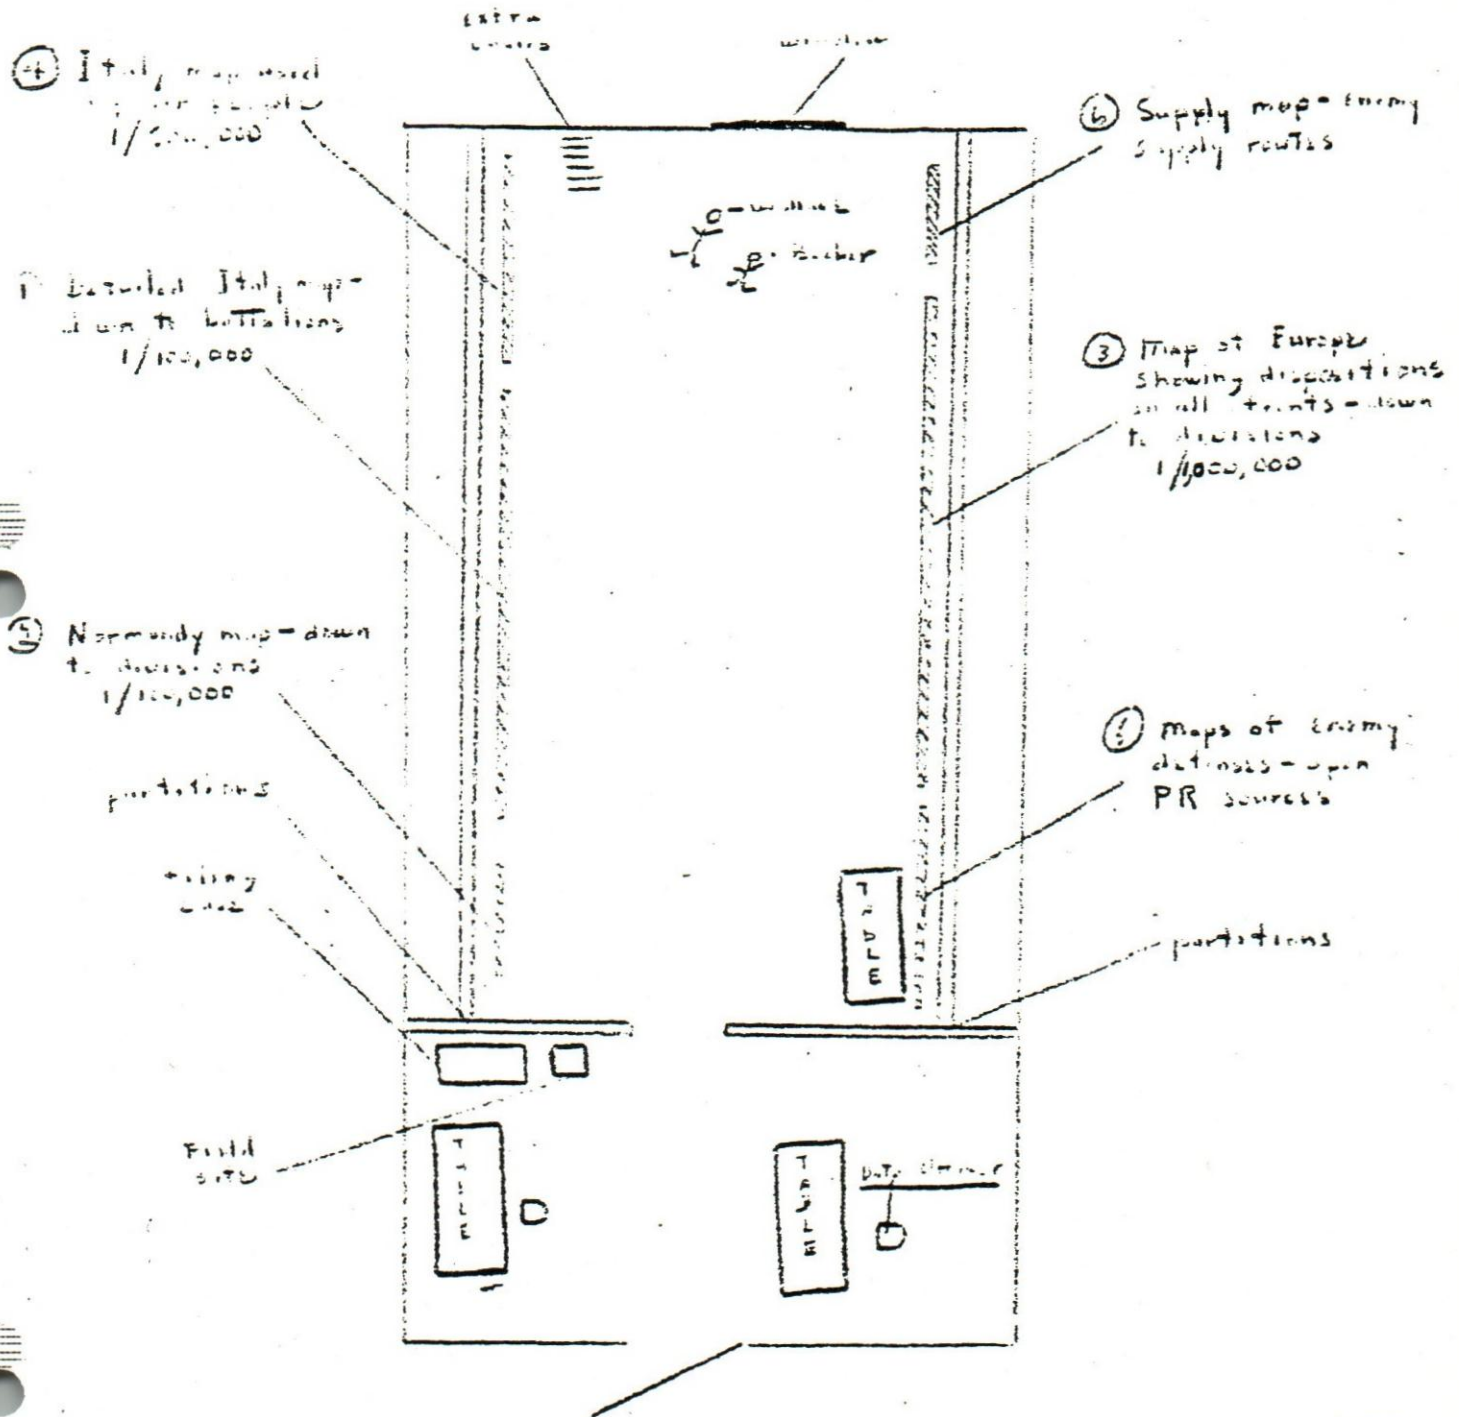 Extra
④ Italy map used
1/500,000
⑥ Supply map - Enemy
Supply routes
Detailed Italy map -
down to battalions
1/100,000
③ Map of Europe
showing dispositions
on all fronts - down
to divisions
1/1,000,000
Normandy map - down
to divisions
1/100,000
Maps of Enemy
defenses - upon
PR sources
partitions
filing
case
TABLE
partitions
Field
safe
TABLE
TABLE
Duty Officer